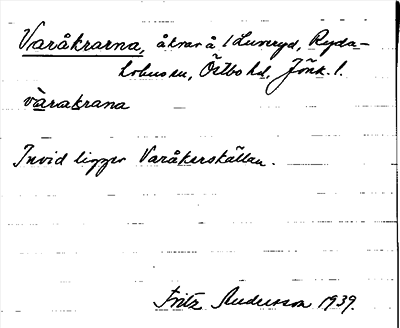 Varåkrarna, åkrar å 1 Luveryd, Ryda-
holms sn, Östbo hd, Jönk. l.
vàrakrana
Invid ligger Varåkerskällan.
Fritz Andersson 1939.